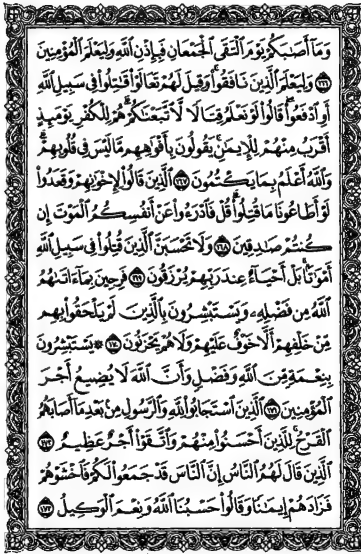 وَمَآ أَصَٰبَكُمْ يَوْمَ ٱلْتَقَى ٱلْجَمْعَانِ فَبِإِذْنِ ٱللَّهِ وَلِيَعْلَمَ ٱلْمُؤْمِنِينَ
﴿١٦٦﴾ وَلِيَعْلَمَ ٱلَّذِينَ نَافَقُوا۟ ۚ وَقِيلَ لَهُمْ تَعَالَوْا۟ قَٰتِلُوا۟ فِى سَبِيلِ ٱللَّهِ
أَوِ ٱدْفَعُوا۟ ۖ قَالُوا۟ لَوْ نَعْلَمُ قِتَالًا لَّٱتَّبَعْنَٰكُمْ ۗ هُمْ لِلْكُفْرِ يَوْمَئِذٍ
أَقْرَبُ مِنْهُمْ لِلْإِيمَٰنِ ۚ يَقُولُونَ بِأَفْوَٰهِهِم مَّا لَيْسَ فِى قُلُوبِهِمْ ۗ
وَٱللَّهُ أَعْلَمُ بِمَا يَكْتُمُونَ ﴿١٦٧﴾ ٱلَّذِينَ قَالُوا۟ لِإِخْوَٰنِهِمْ وَقَعَدُوا۟
لَوْ أَطَاعُونَا مَا قُتِلُوا۟ ۗ قُلْ فَٱدْرَءُوا۟ عَنْ أَنفُسِكُمُ ٱلْمَوْتَ إِن
كُنتُمْ صَٰدِقِينَ ﴿١٦٨﴾ وَلَا تَحْسَبَنَّ ٱلَّذِينَ قُتِلُوا۟ فِى سَبِيلِ ٱللَّهِ
أَمْوَٰتًۢا ۚ بَلْ أَحْيَآءٌ عِندَ رَبِّهِمْ يُرْزَقُونَ ﴿١٦٩﴾ فَرِحِينَ بِمَآ ءَاتَىٰهُمُ
ٱللَّهُ مِن فَضْلِهِۦ وَيَسْتَبْشِرُونَ بِٱلَّذِينَ لَمْ يَلْحَقُوا۟ بِهِم
مِّنْ خَلْفِهِمْ أَلَّا خَوْفٌ عَلَيْهِمْ وَلَا هُمْ يَحْزَنُونَ ﴿١٧٠﴾ ۞ يَسْتَبْشِرُونَ
بِنِعْمَةٍ مِّنَ ٱللَّهِ وَفَضْلٍ وَأَنَّ ٱللَّهَ لَا يُضِيعُ أَجْرَ
ٱلْمُؤْمِنِينَ ﴿١٧١﴾ ٱلَّذِينَ ٱسْتَجَابُوا۟ لِلَّهِ وَٱلرَّسُولِ مِنۢ بَعْدِ مَآ أَصَابَهُمُ
ٱلْقَرْحُ ۚ لِلَّذِينَ أَحْسَنُوا۟ مِنْهُمْ وَٱتَّقَوْا۟ أَجْرٌ عَظِيمٌ ﴿١٧٢﴾
ٱلَّذِينَ قَالَ لَهُمُ ٱلنَّاسُ إِنَّ ٱلنَّاسَ قَدْ جَمَعُوا۟ لَكُمْ فَٱخْشَوْهُمْ
فَزَادَهُمْ إِيمَٰنًا وَقَالُوا۟ حَسْبُنَا ٱللَّهُ وَنِعْمَ ٱلْوَكِيلُ ﴿١٧٣﴾